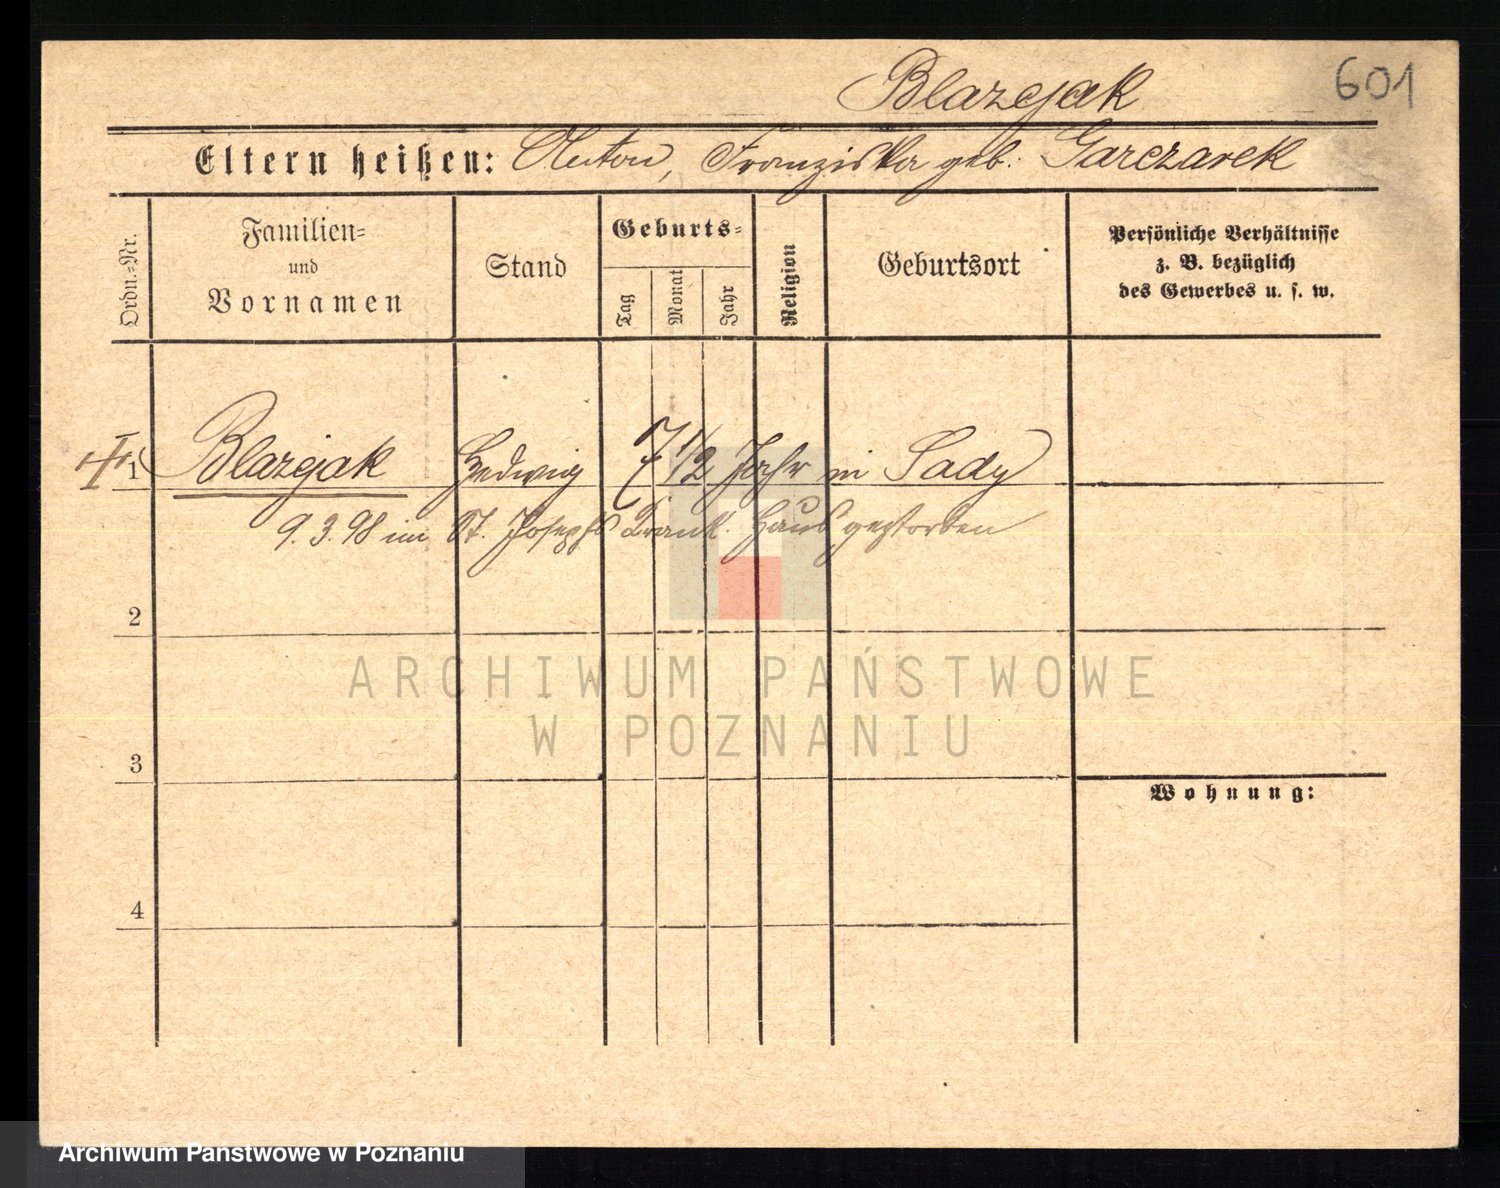 Blazejak 601
Eltern heißen: Anton, Franziska geb. Garczarek
Ordn.=Nr.
Familien=
und
Vornamen
Stand
Geburts=
Tag
Monat
Jahr
Religion
Geburtsort
Persönliche Verhältnisse
z. B. bezüglich
des Gewerbes u. s. w.
1 Blazejak Hedwig 7 1/2 Jahr in Sady
9. 3. 98 im St. Josephs Krank. Haus gestorben
2
ARCHIWUM PAŃSTWOWE
W POZNANIU
3
Wohnung:
4
Archiwum Państwowe w Poznaniu